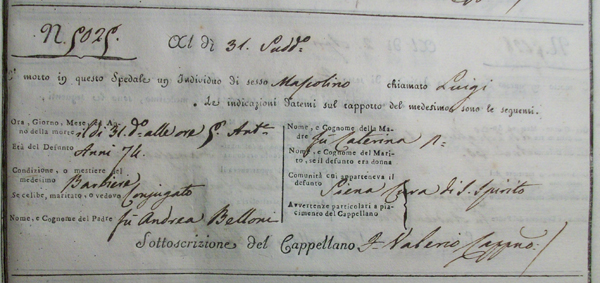 N. 5025.
Al dì 31. Sudd.º
E' morto in questo Spedale un Individuo di sesso Mascolino chiamato Luigi
Le indicazioni datemi sul rapporto del medesimo sono le seguenti.
Ora, Giorno, Mese ed Anno della morte il dì 31. dº alle ore 5. Ant.e
Età del Defunto Anni 74.
Condizione, o mestiere del medesimo Barbiere
Se celibe, maritato, o vedovo Conjugato
Nome, e Cognome del Padre fù Andrea Belloni
Nome, e Cognome della Madre fù Caterina N:
Nome, e Cognome del Marito, se il defunto era donna
Comunità cui apparteneva il defunto Siena Cura di S. Spirito
Avvertenze particolari a piacimento del Cappellano
Sottoscrizione del Cappellano F. Valerio Capp.no